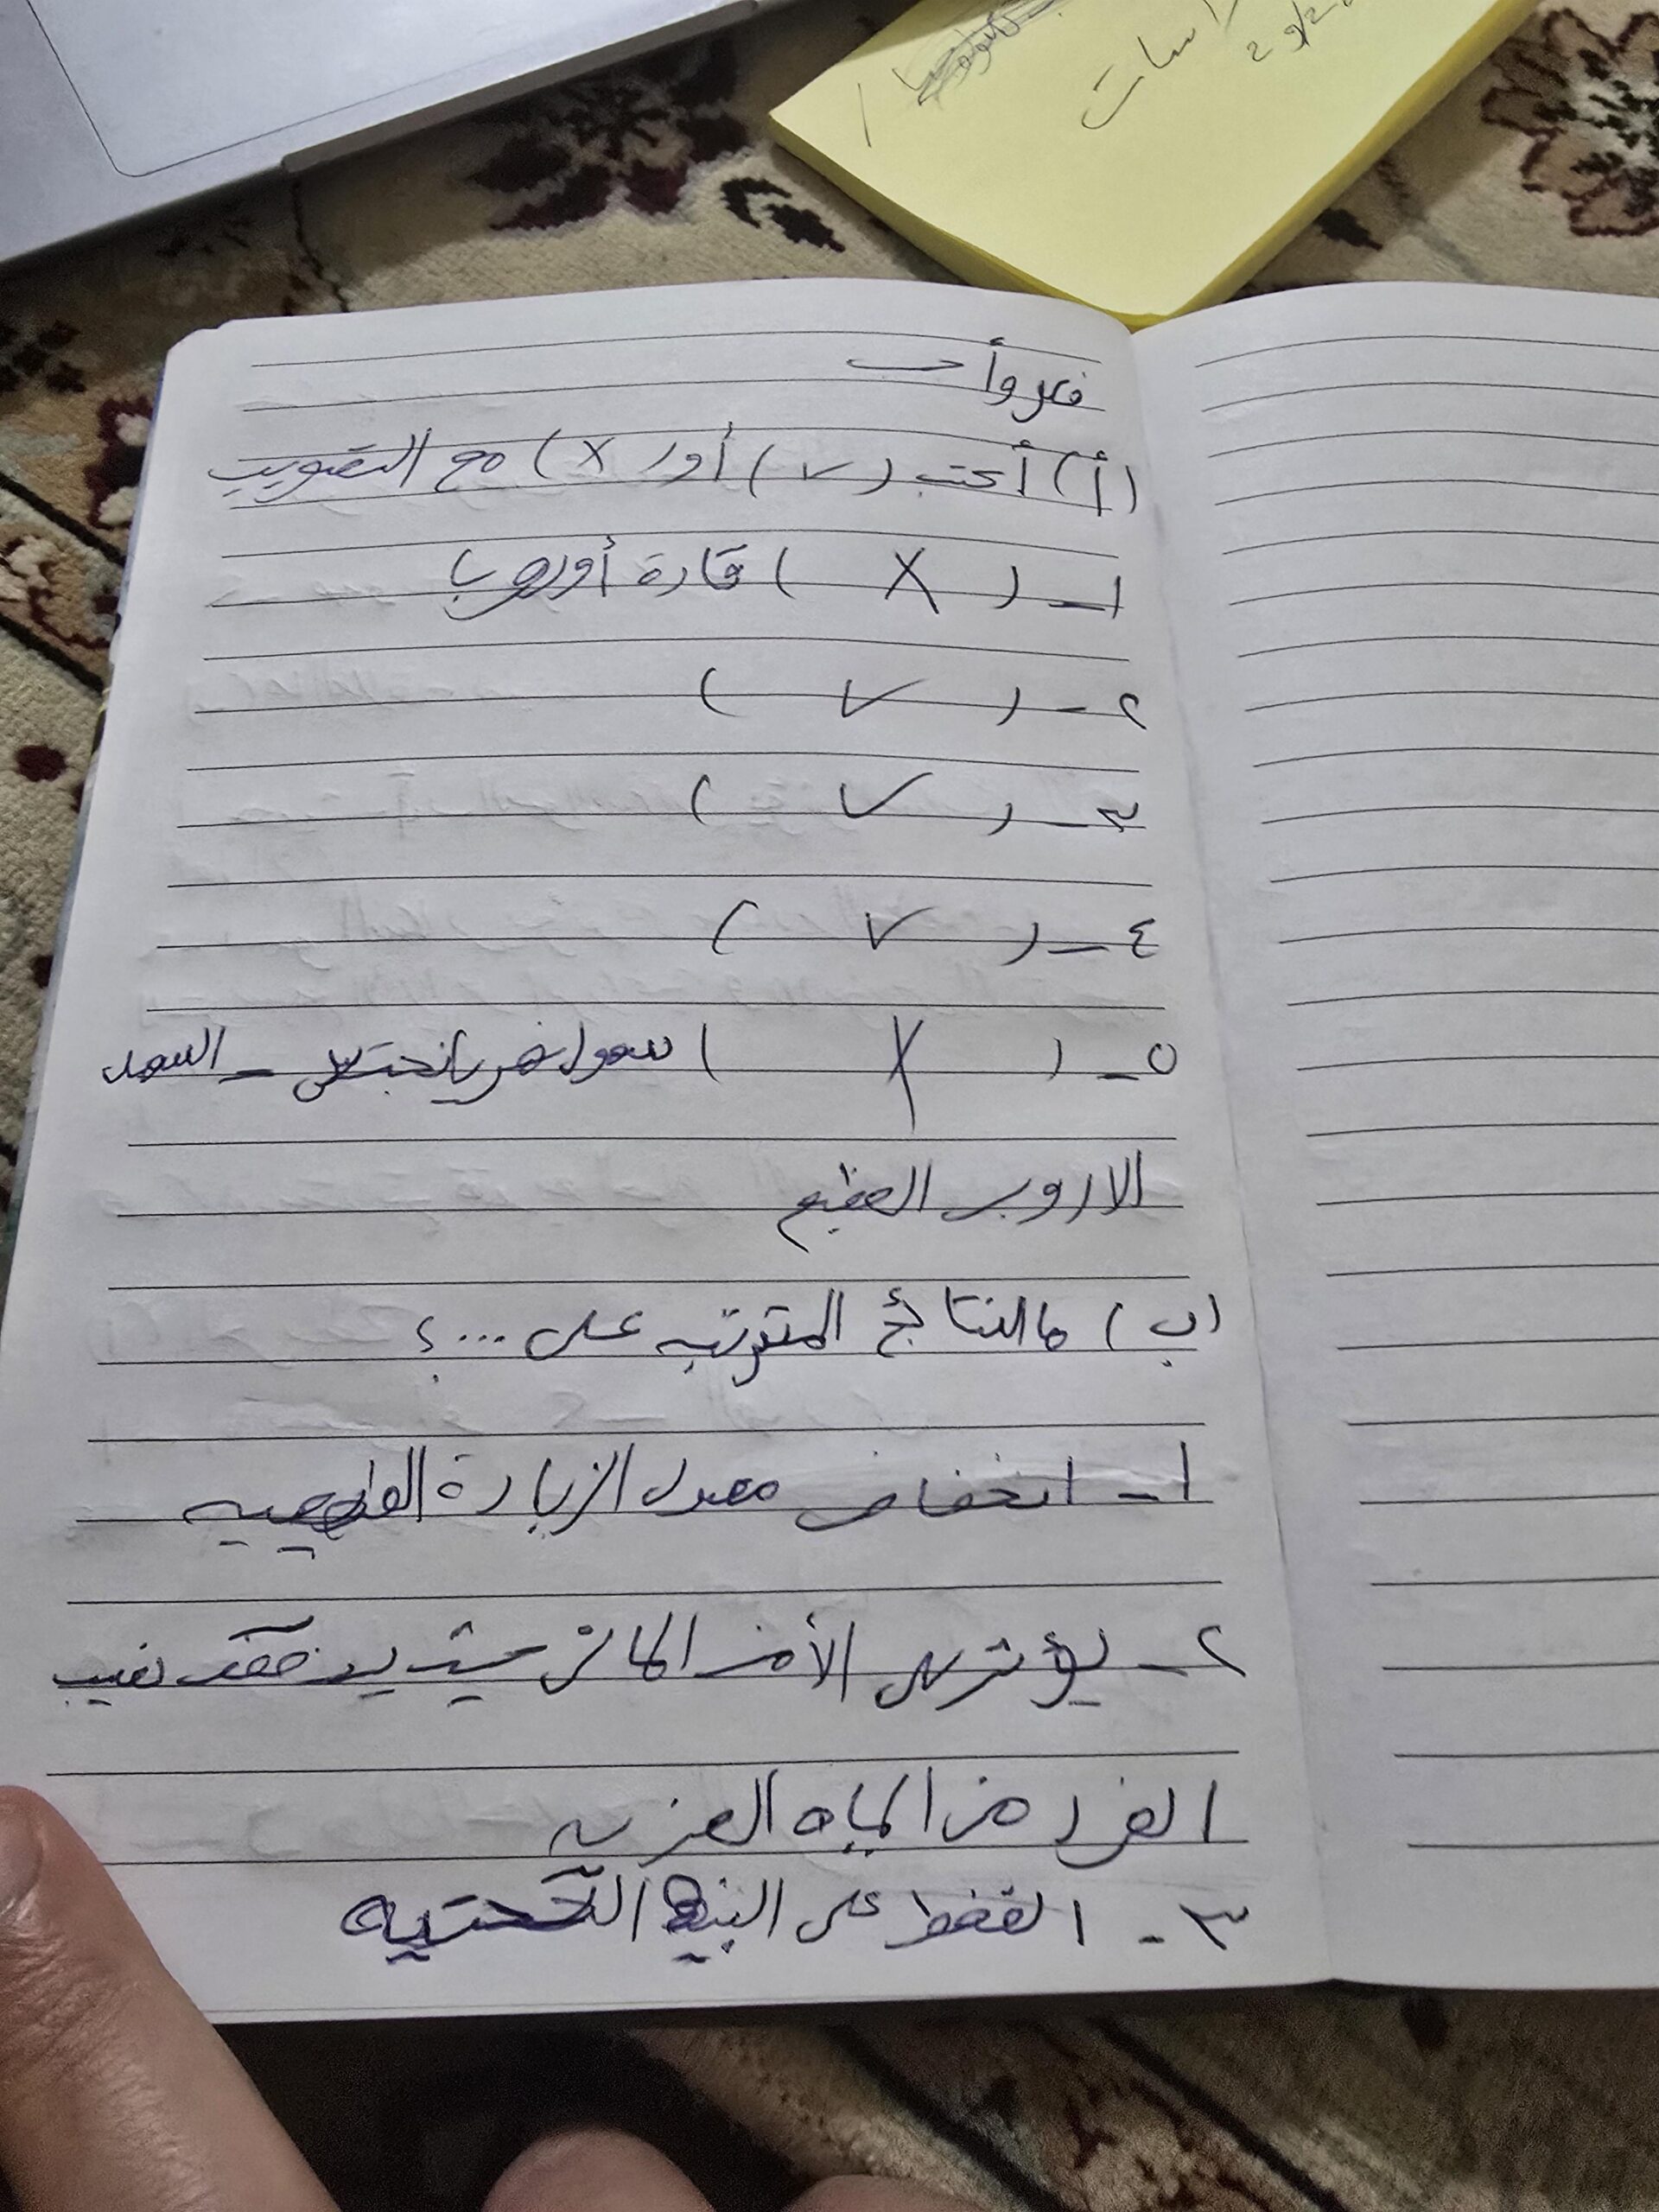 دراسات
فكر وأجب
(أ) أكتب (✓) أو (X) مع التصويب
١- (X) قارة أوروبا
٢- (✓)
٣- (✓)
٤- (✓)
٥- (X) سهول - السهل
الاروبى العظيم
(ب) ما النتائج المترتبه على ...؟
١- انخفاض معدل الزيادة الطبيعيه
٢- يؤثر على الأمن المائى نصيب
الفرد من المياه العزبه
٣- الضغط على البنية التحتيه